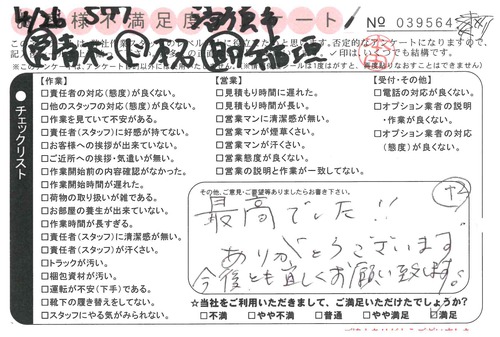 様不満足度アンケート
No 039564
チェックリスト
【作業】
□責任者の対応(態度)が良くない。
□他のスタッフの対応(態度)が良くない。
□作業を見ていて不安がある。
□責任者(スタッフ)に好感が持てない。
□お客様への挨拶が出来ていない。
□ご近所への挨拶・気遣いが無い。
□作業開始前の内容確認がなかった。
□作業開始時間が遅れた。
□荷物の取り扱いが雑である。
□お部屋の養生が出来ていない。
□作業時間が長すぎる。
□責任者(スタッフ)に清潔感が無い。
□責任者(スタッフ)が汗くさい。
□トラックが汚い。
□梱包資材が汚い。
□運転が不安(下手)である。
□靴下の履き替えをしてない。
□スタッフにやる気がみられない。
【営業】
□見積もり時間に遅れた。
□見積もり時間が長い。
□営業マンに清潔感が無い。
□営業マンが煙草くさい。
□営業マンが汗くさい。
□営業態度が良くない。
□営業の説明と作業が一致してない。
【受付・その他】
□電話の対応が良くない。
□オプション業者の説明
・作業が良くない。
□オプション業者の対応
(態度)が良くない。
その他、ご意見・ご要望等ありましたらお書き下さい。
最高でした!!
ありがとうございます
今後とも宜しくお願い致します。
☆当社をご利用いただきまして、ご満足いただけたでしょうか?
□不満 □やや不満 □普通 □やや満足 □満足